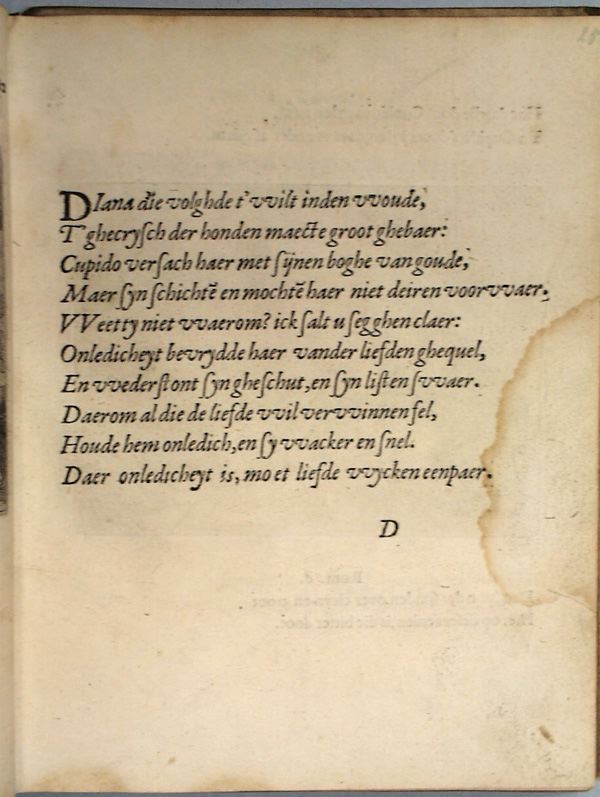 DIana die volghde t'vvilt inden vvoude,
T'ghecryſch der honden maecte groot ghebaer:
Cupido verſach haer met ſijnen boghe van goude,
Maer ſyn ſchichtē en mochtē haer niet deiren voorvvaer.
VVeet ty niet vvaerom? ick ſalt u ſegghen claer:
Onledicheyt bevrydde haer vander liefden ghequel,
En vvederſtont ſyn gheſchut, en ſyn liſten ſvvaer.
Daerom al die de liefde vvil vervvinnen fel,
Houde hem onledich, en ſy vvacker en ſnel.
Daer onledicheyt is, moet liefde vvycken eenpaer.
D